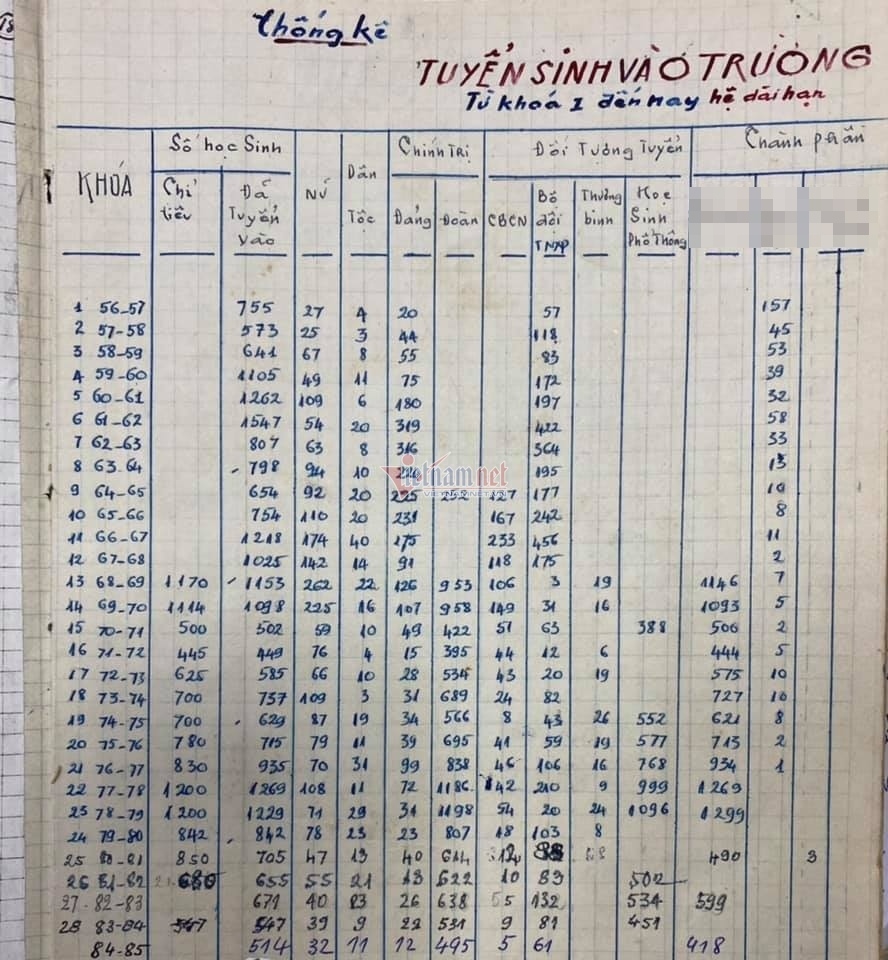 18
Thống kê
TUYỂN SINH VÀO TRƯỜNG
Từ khoá I đến nay hệ dài hạn
KHÓA Số học Sinh Nữ Dân Tộc Chính Trị Đối Tượng Tuyển Thành phần
Chỉ tiêu Đã Tuyển vào Đảng Đoàn CBCN Bộ đội TNXP Thương binh Học Sinh Phổ Thông
1 56-57 755 27 4 20 57 157
2 57-58 573 25 3 44 118 45
3 58-59 641 67 8 55 83 53
4 59-60 1105 49 11 75 172 39
5 60-61 1262 109 6 180 197 32
6 61-62 1547 54 20 319 422 58
7 62-63 807 63 8 316 364 33
8 63-64 798 94 10 195 13
9 64-65 654 92 20 225 252 127 177 10
10 65-66 754 110 20 231 167 242 8
11 66-67 1218 174 40 175 233 456 11
12 67-68 1025 142 14 91 118 175 2
13 68-69 1170 1153 262 22 126 953 106 3 19 1146 7
14 69-70 1114 1098 225 16 107 958 149 31 16 1093 5
15 70-71 500 502 59 10 49 422 51 63 388 506 2
16 71-72 445 449 76 4 15 395 44 12 6 444 5
17 72-73 625 585 66 10 28 534 43 20 19 575 10
18 73-74 700 737 109 3 31 689 24 82 727 10
19 74-75 700 629 87 19 34 566 8 43 26 552 621 8
20 75-76 780 715 79 11 39 695 41 59 19 577 713 2
21 76-77 830 935 70 31 99 838 46 106 16 768 934 1
22 77-78 1200 1269 108 11 72 1186 142 210 9 999 1269
23 78-79 1200 1229 71 29 31 1198 54 20 24 1096 1299
24 79-80 842 842 78 23 23 807 18 103 8
25 80-81 850 705 47 13 40 614 490 3
26 81-82 680 655 55 21 13 622 10 83 502
27-82-83 671 40 83 26 638 132 534 599
28 83-84 547 547 39 9 22 531 9 81 451
84-85 514 32 11 12 495 5 61 418
Vietnamnet
VIETNAMNET.VN